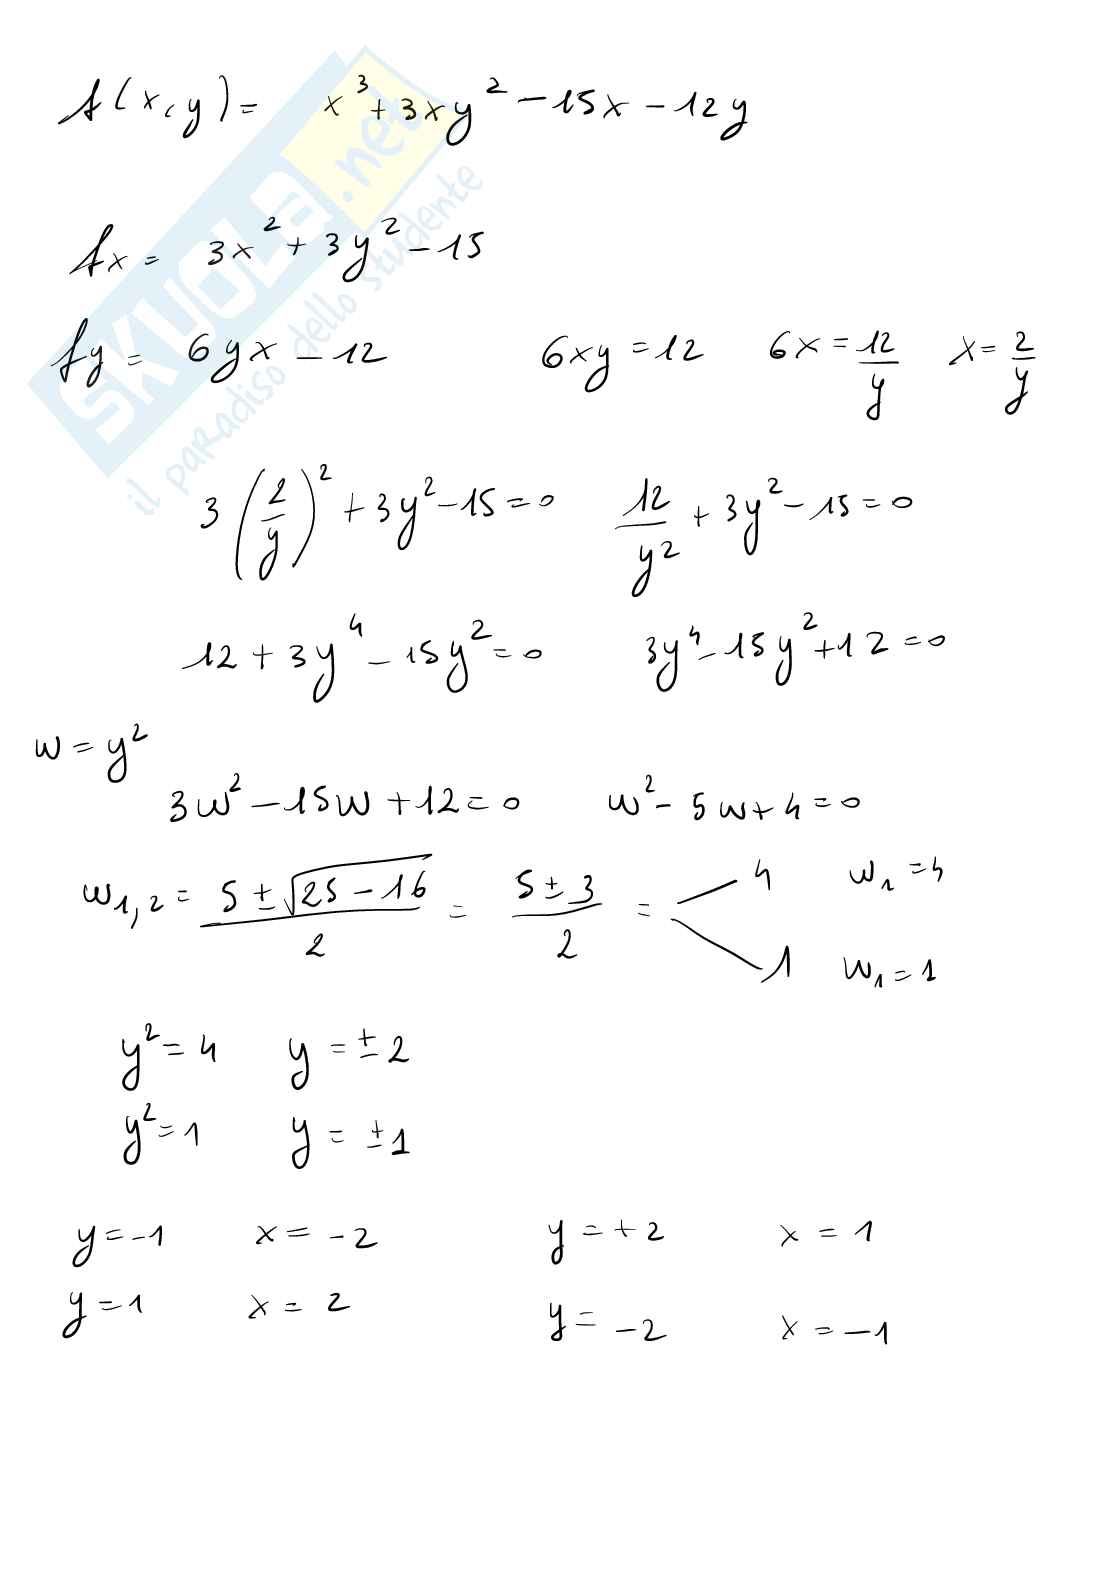 f(x,y) = x³ + 3xy² - 15x - 12y
fx = 3x² + 3y² - 15
fy = 6yx - 12 6xy = 12 6x = 12/y x = 2/y
3(2/y)² + 3y² - 15 = 0 12/y² + 3y² - 15 = 0
12 + 3y⁴ - 15y² = 0 3y⁴ - 15y² + 12 = 0
w = y²
3w² - 15w + 12 = 0 w² - 5w + 4 = 0
w₁,₂ = (5 ± √(25 - 16))/2 = (5 ± 3)/2 = 4 w₁ = 4
1 w₁ = 1
y² = 4 y = ± 2
y² = 1 y = ± 1
y = -1 x = -2 y = +2 x = 1
y = 1 x = 2 y = -2 x = -1
SKUOLA.net
il paradiso dello studente